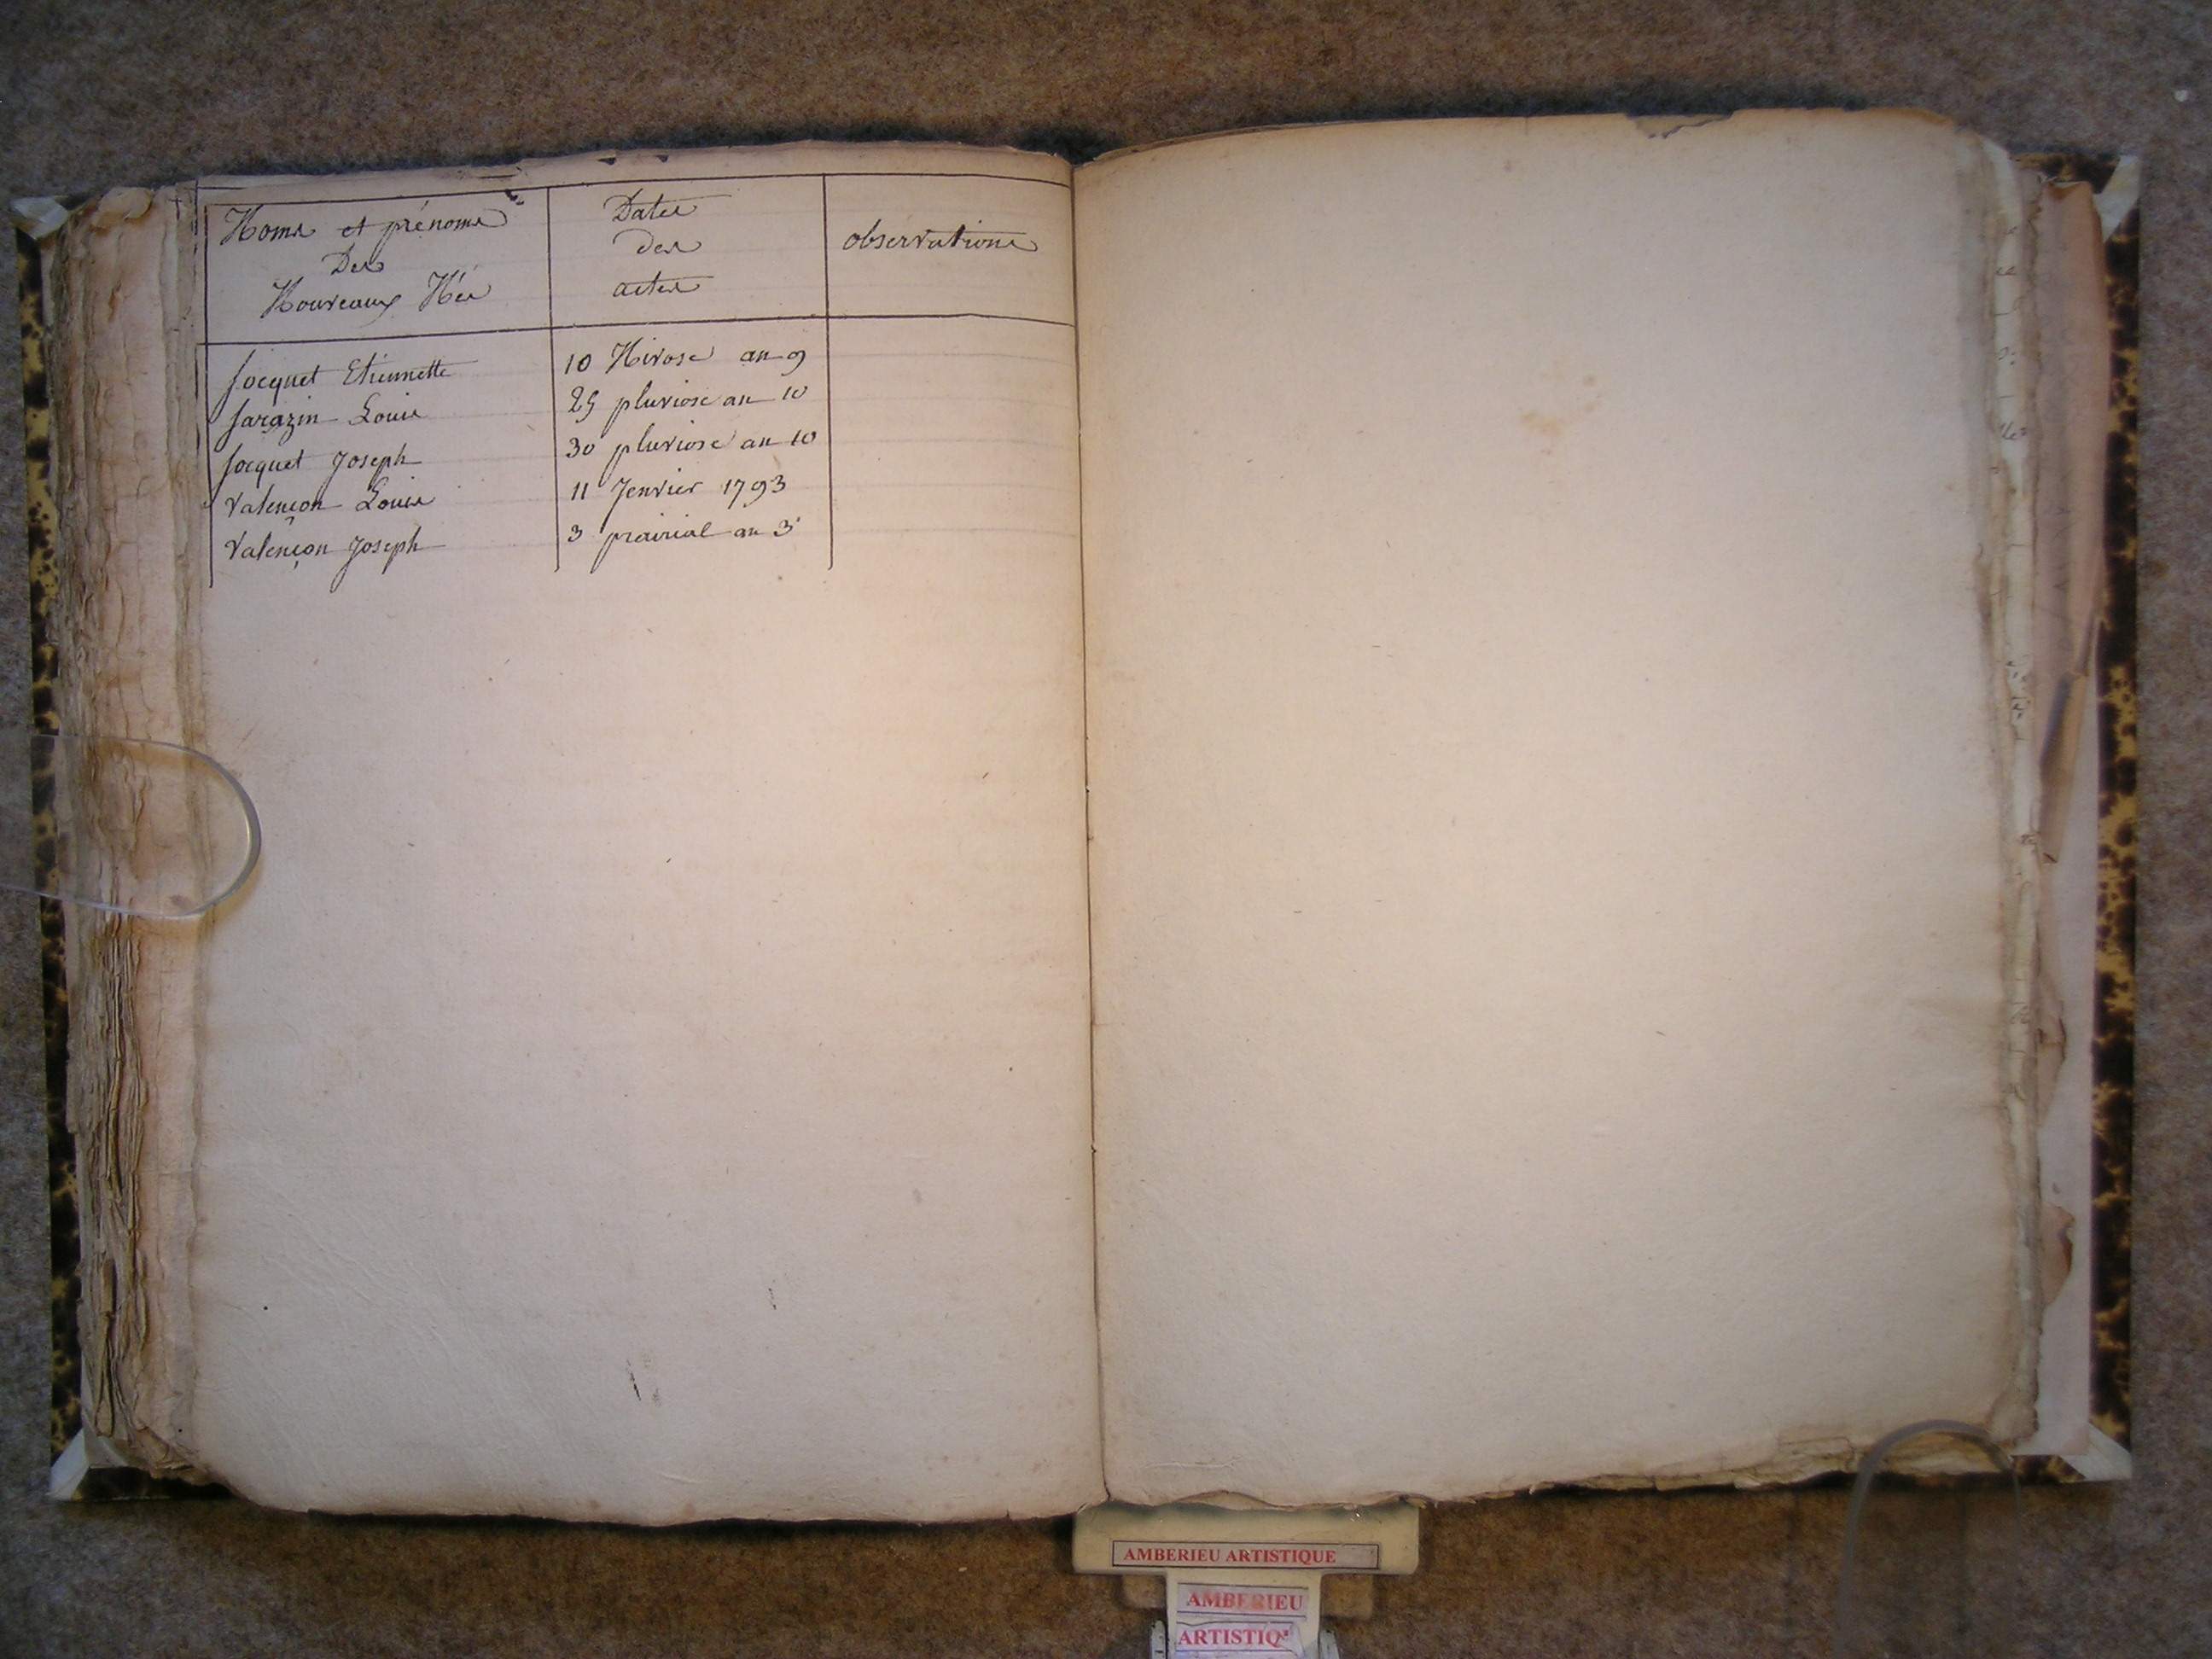 Noms et prénoms
Des
Nouveaux Nés
Dates
des
actes
observations
Socquet Etiennette 10 Nivose an 9
Sarazin Louis 25 pluviose an 10
Socquet Joseph 30 pluviose an 10
Valençon Louis 11 Jenvier 1793
Valençon Joseph 3 prairial an 3
AMBERIEU ARTISTIQUE
AMBERIEU
ARTISTIQ